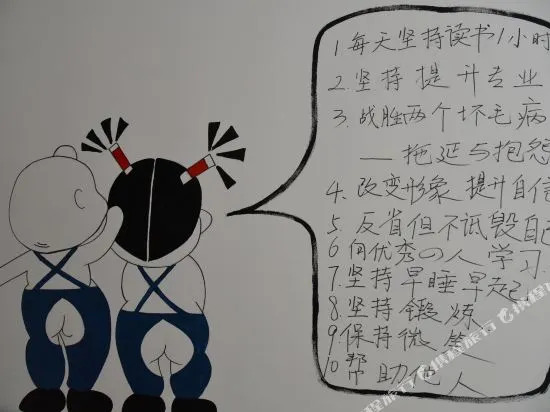 1 每天坚持读书1小时
2. 坚持提升专业
3. 战胜两个坏毛病
——拖延与抱怨
4. 改变形象 提升自信
5. 反省但不诋毁自己
6 向优秀の人学习
7 坚持早睡早起
8 坚持锻炼
9 保持微笑
10 帮助他人
携程旅行